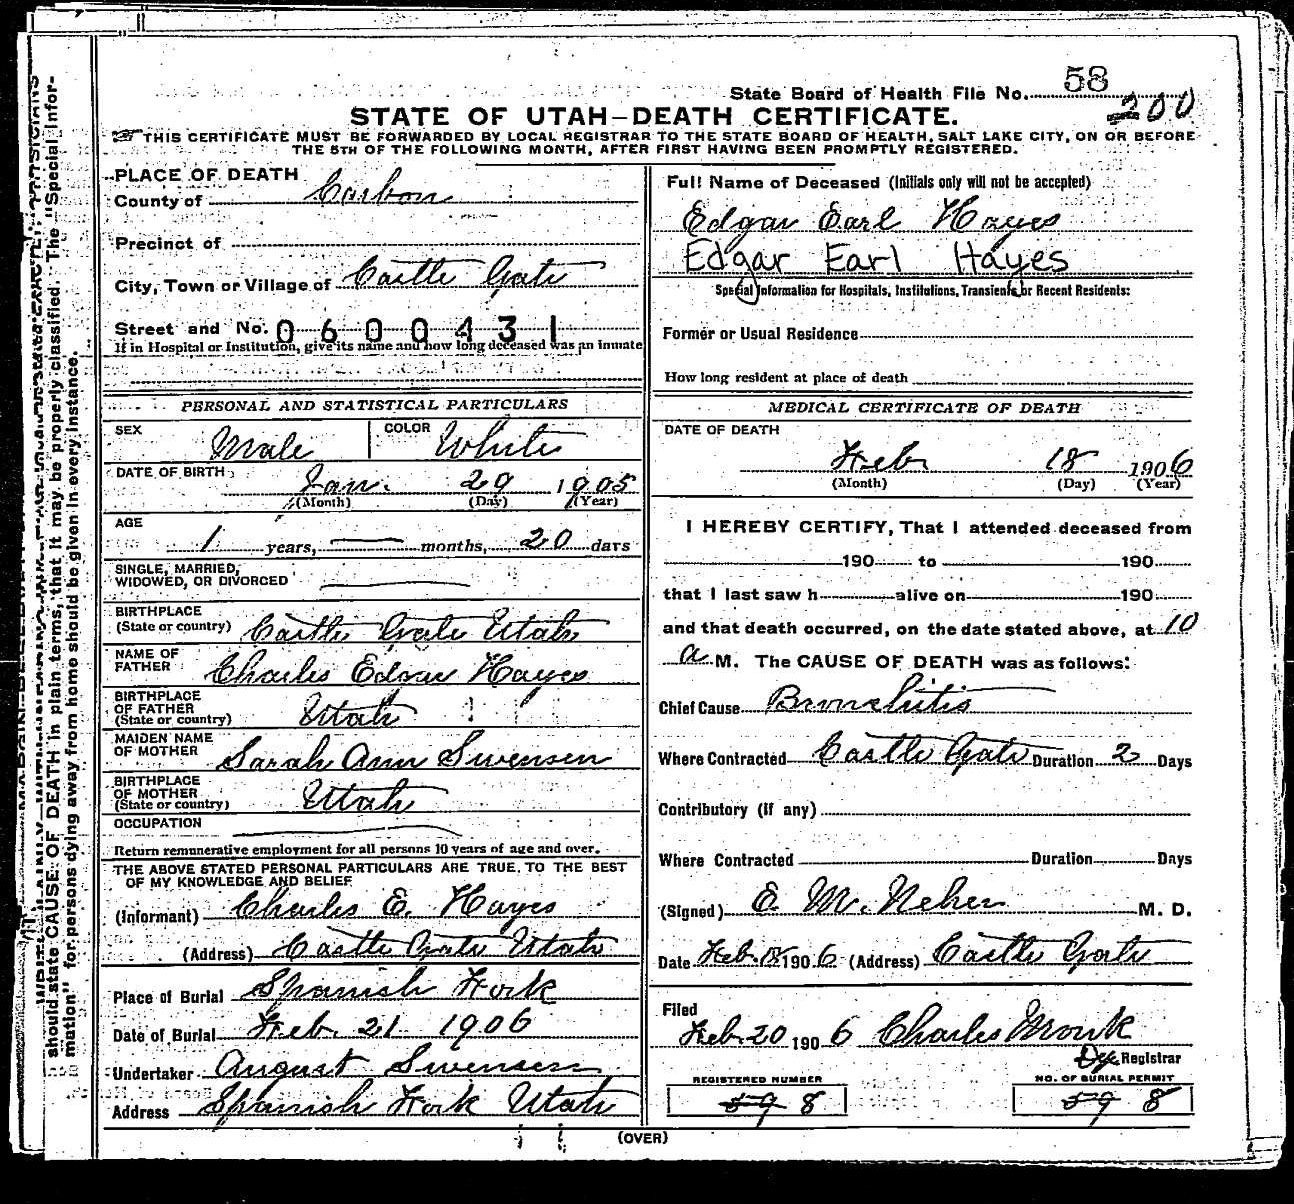 State Board of Health File No. 58
200
STATE OF UTAH—DEATH CERTIFICATE.
THIS CERTIFICATE MUST BE FORWARDED BY LOCAL REGISTRAR TO THE STATE BOARD OF HEALTH, SALT LAKE CITY, ON OR BEFORE
THE 5TH OF THE FOLLOWING MONTH, AFTER FIRST HAVING BEEN PROMPTLY REGISTERED.
PLACE OF DEATH
County of Carbon
Precinct of
City, Town or Village of Castle Gate
Street and No. 0600431
If in Hospital or Institution, give its name and how long deceased was an inmate
PERSONAL AND STATISTICAL PARTICULARS
SEX Male COLOR White
DATE OF BIRTH Jan. 29 1905
(Month) (Day) (Year)
AGE
1 years, — months, 20 days
SINGLE, MARRIED,
WIDOWED, OR DIVORCED
BIRTHPLACE
(State or country) Castle Gate Utah
NAME OF
FATHER Charles Edgar Hayes
BIRTHPLACE
OF FATHER
(State or country) Utah
MAIDEN NAME
OF MOTHER Sarah Ann Swensen
BIRTHPLACE
OF MOTHER
(State or country) Utah
OCCUPATION
Return remunerative employment for all persons 10 years of age and over.
THE ABOVE STATED PERSONAL PARTICULARS ARE TRUE TO THE BEST
OF MY KNOWLEDGE AND BELIEF
(Informant) Charles E. Hayes
(Address) Castle Gate Utah
Place of Burial Spanish Fork
Date of Burial Feb. 21 1906
Undertaker August Swensen
Address Spanish Fork Utah
Full Name of Deceased (Initials only will not be accepted)
Edgar Earl Hayes
Edgar Earl Hayes
Special Information for Hospitals, Institutions, Transients or Recent Residents:
Former or Usual Residence
How long resident at place of death
MEDICAL CERTIFICATE OF DEATH
DATE OF DEATH
Feb 18 1906
(Month) (Day) (Year)
I HEREBY CERTIFY, That I attended deceased from
190 to 190
that I last saw h alive on 190
and that death occurred, on the date stated above, at 10
a M. The CAUSE OF DEATH was as follows:
Chief Cause Bronchitis
Where Contracted Castle Gate Duration 2 Days
Contributory (if any)
Where Contracted Duration Days
(Signed) E. M. Neher M. D.
Date Feb. 18 1906 (Address) Castle Gate
Filed
Feb. 20 1906 Charles Monk
Dep Registrar
REGISTERED NUMBER
59 8
NO. OF BURIAL PERMIT
59 8
(OVER)
should state CAUSE OF DEATH in plain terms, that it may be properly classified. The "Special Infor-
mation" for persons dying away from home should be given in every instance.